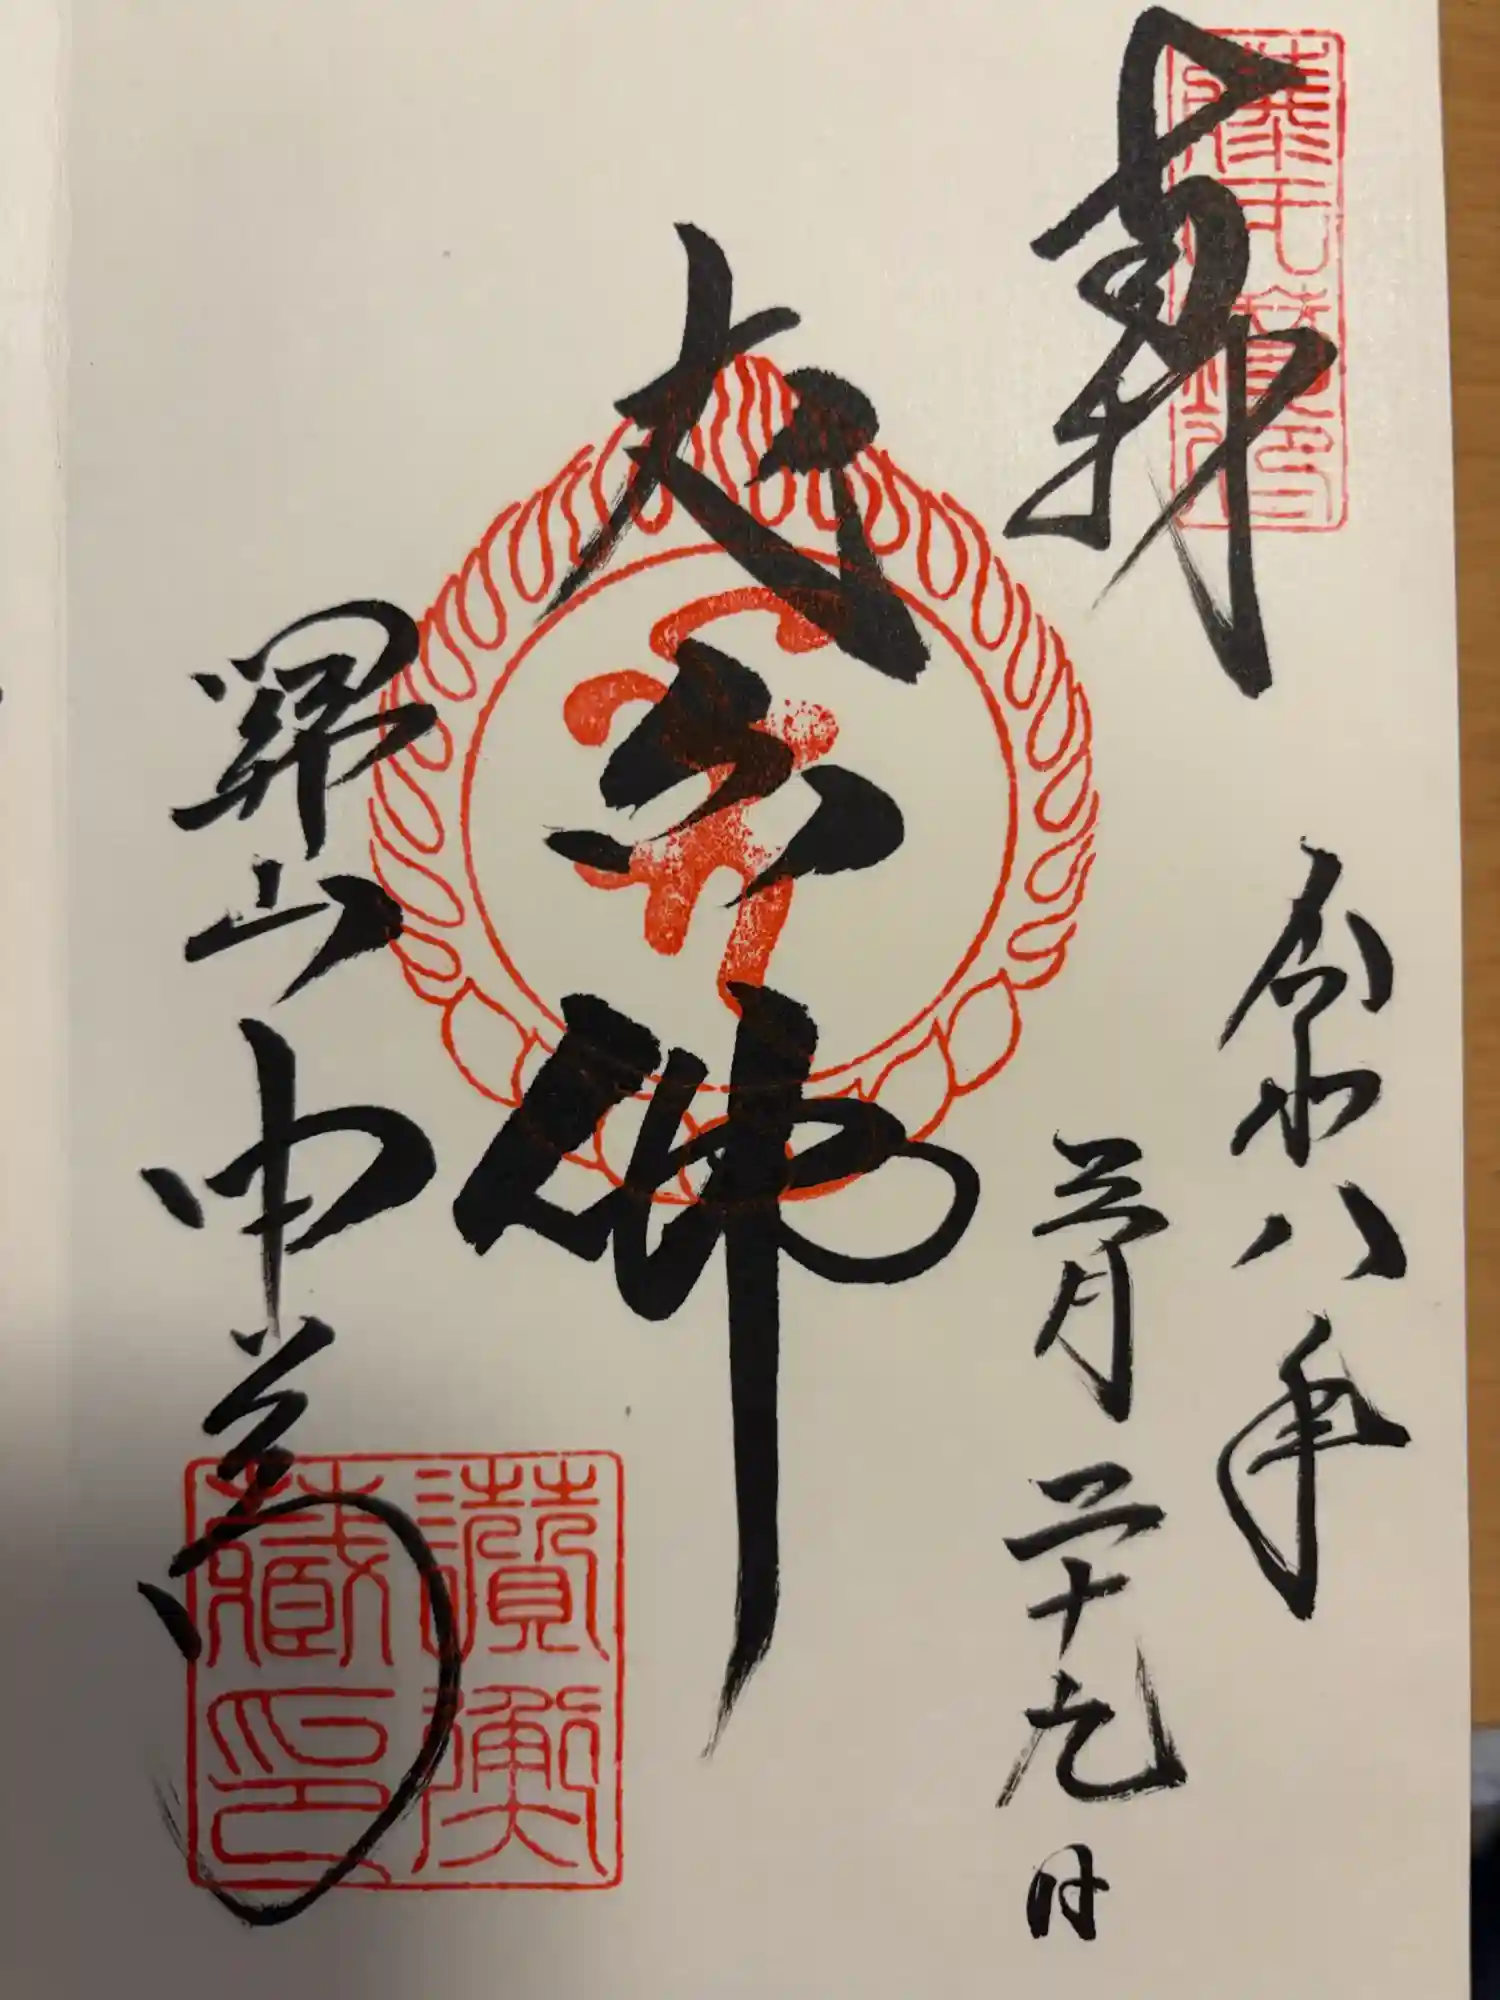 奉拝
令和八年
三月二十九日
丈六佛
關山
中尊寺
讃衡
蔵印